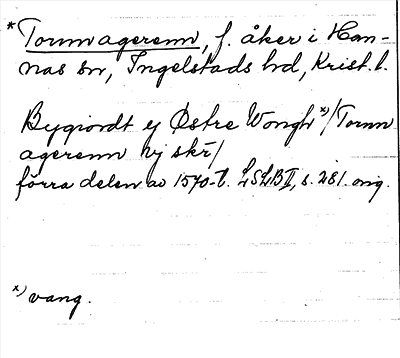 * Tormagerenn, f. åker i Han-
nas sn, Ingelstads hd, Krist. l.
Bygiordt ej Østre Wongh x)/Torm
agerenn vj skr̄/
förra delen av 1570-t. LSLB II, s. 281. orig.
x) vang.